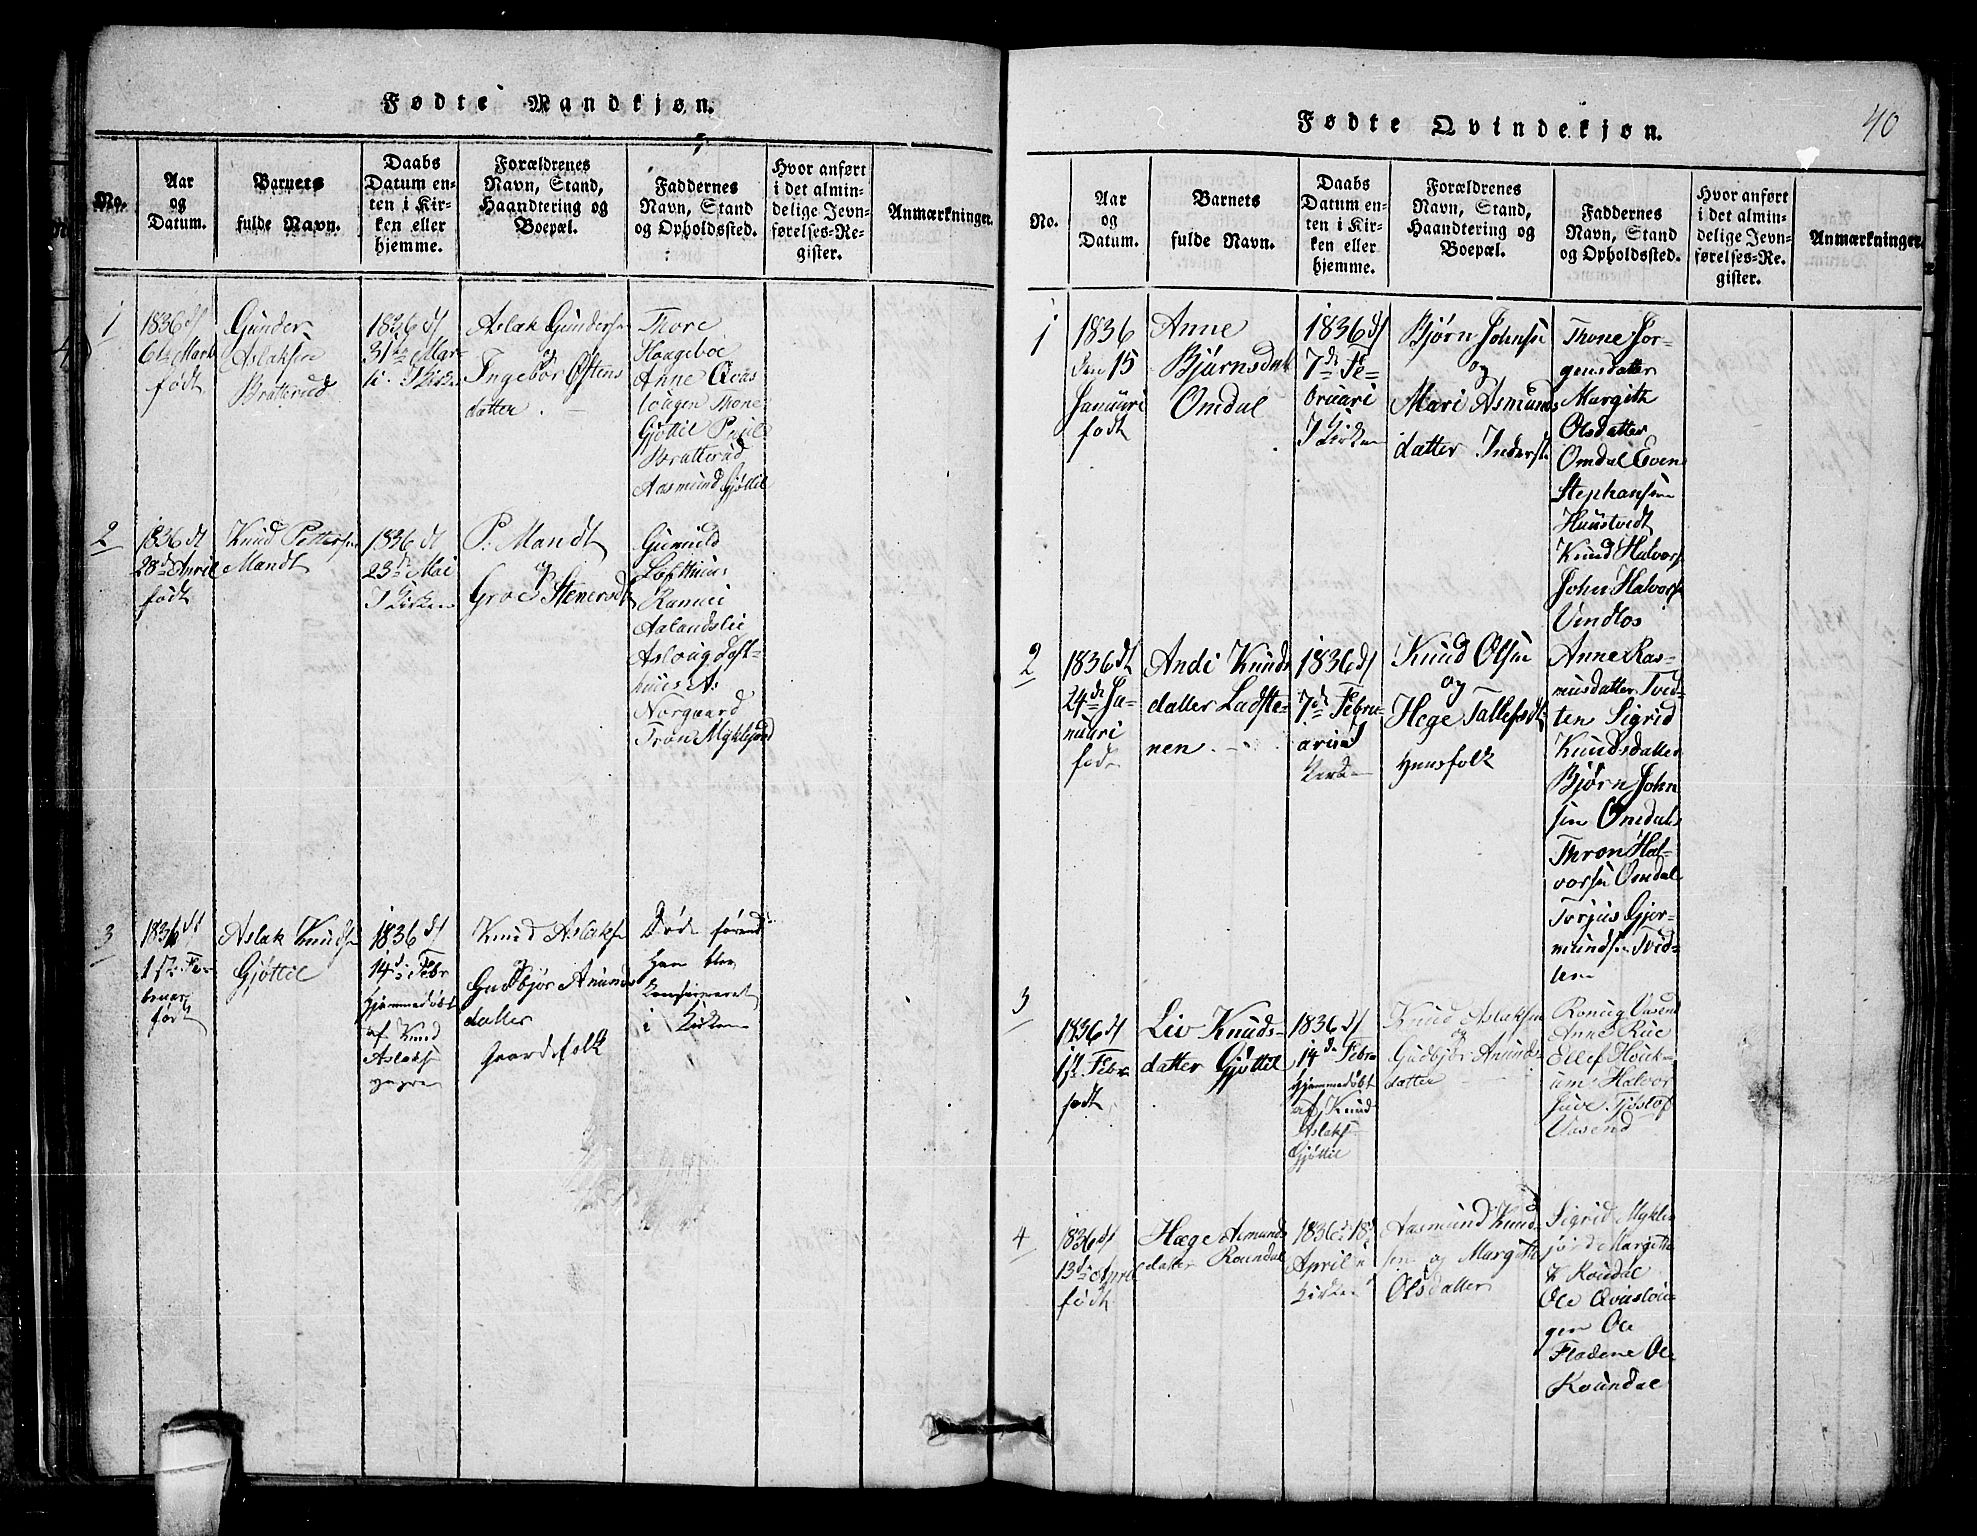 Fødte Mandkjøn.
No.
Aar
og
Datum.
Barnets
fulde Navn.
Daabs
Datum en-
ten i Kir-
ken eller
hjemme.
Forældrenes
Navn, Stand,
Haandtering og
Boepæl.
Faddernes
Navn, Stand
og Opholdssted.
Hvor anført
i det almin-
delige Jevn-
førelses-Re-
gister.
Anmærkninger.
1
1836 d
6te Marti
født
Gunder
Aslaksen
Bratterud
1836 d
31te Mar-
ti. I Kirken
Aslak Gundersen
og
Ingebor Østens
datter
Thore
Haugeboe
Anne Qvas
lougen Thone
Gjøttil
Bratterud
Aasmund Gjøttil
2
1836 d
28de April
født
Knud Pettersen
Mandt
1836 d
23de Mai
I Kirken
P: Mandt
og
Groe Stenersdt
Gunuld
Lofthuus
Rannei
Aalandslie
Aslaug Loft-
huus A:
Norgaard
Tron Myklejord
3
1836 d
1ste Fe-
bruar
født
Aslak Knudsen
Gjøttil
1836 d
14de Febr
Hjemmedøbt
af Knud
Aslaksen
Knud Aslaksen
og
Gudbjør Anunds
datter
Gaardefolk
Døde førend
Han blev
i Kirken
Fødte Qvindekjøn.
40
No.
Aar
og
Datum.
Barnets
fulde Navn.
Daabs
Datum en-
ten i Kir-
ken eller
hjemme.
Forældrenes
Navn, Stand,
Haandtering og
Boepæl.
Faddernes
Navn, Stand
og Opholdssted.
Hvor anført
i det almin-
delige Jevn-
førelses-Re-
gister.
Anmærkninger.
1
1836
den 15
Januari
født
Anne
Bjørnsdat
Omdal
1836 d
7de Fe-
bruari
I Kirken
Bjørn Johnsen
og
Mari Asmunds
datter Inderst
Thone Jor-
gensdatter
Margith
Olsdatter
Omdal Even
Stephansen
Huustvedt
Knud Halvors
John Halvors
Vindlos
2
1836 dt
24de Ja-
nuari
født
Andi Knuds
datter Ladste-
nen
1836 d
7de Febru-
arii I
Kirken
Knud Olsen
og
Hege Tallefsdt
Huusfolk
Anne Ras-
musdatter Tved-
ten Sigrid
Knudsdatter
Bjørn John
sen Omdal
Thron Hal-
vorsen Omdal
Torjus Gjer-
mundsen Tved-
ten
3
1836 d
1ste Febr
født
Liv Knuds-
datter Gjøttil
1836 d
14de Febr
Hjemmedøbt
af Knud
Aslaksen
Gjøttil
Knud Aslaksen
og
Gudbjør Anunds
datter
Ronnig Vasend
Anne Rue
Ellef Houk-
um Halvor
Juve Tjøstof
Vasend
4
1836 d
13de April
født
Hæge Asmunds
datter Roundal
1836 d: 18de
April i
Kirken
Aasmund Knud
sen og Margith
Olsdatter
Sigrid Myklen
jord Margith
K Roundal
Ole Qvaslou-
gen Ole
Flodene Ole
Roundal